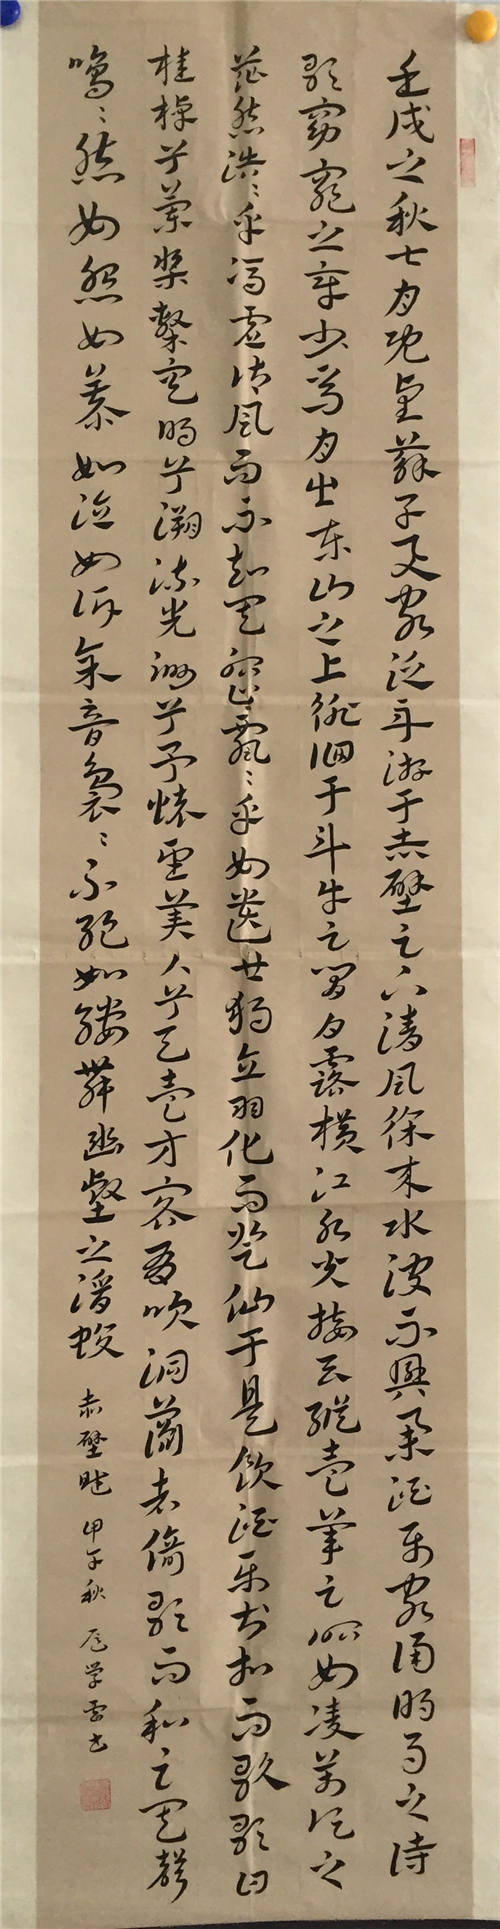 壬戌之秋七月既望蘇子与客泛舟游于赤壁之下清風徐来水波不興举酒属客诵明月之诗
歌窈窕之章少焉月出东山之上徘徊于斗牛之间白露横江水光接天縱壹苇之所如凌万顷之
茫然浩〻乎冯虚御風而不知其所止飄〻乎如遗世独立羽化而登仙于是饮酒乐甚扣而歌歌曰
桂棹兮蘭槳擊空明兮溯流光渺兮予懷望美人兮天壹方客有吹洞蕭者倚歌而和之其聲
嗚〻然如怨如慕如泣如诉余音袅〻不绝如縷舞幽壑之潛蛟 赤壁赋 甲午秋 学雷书